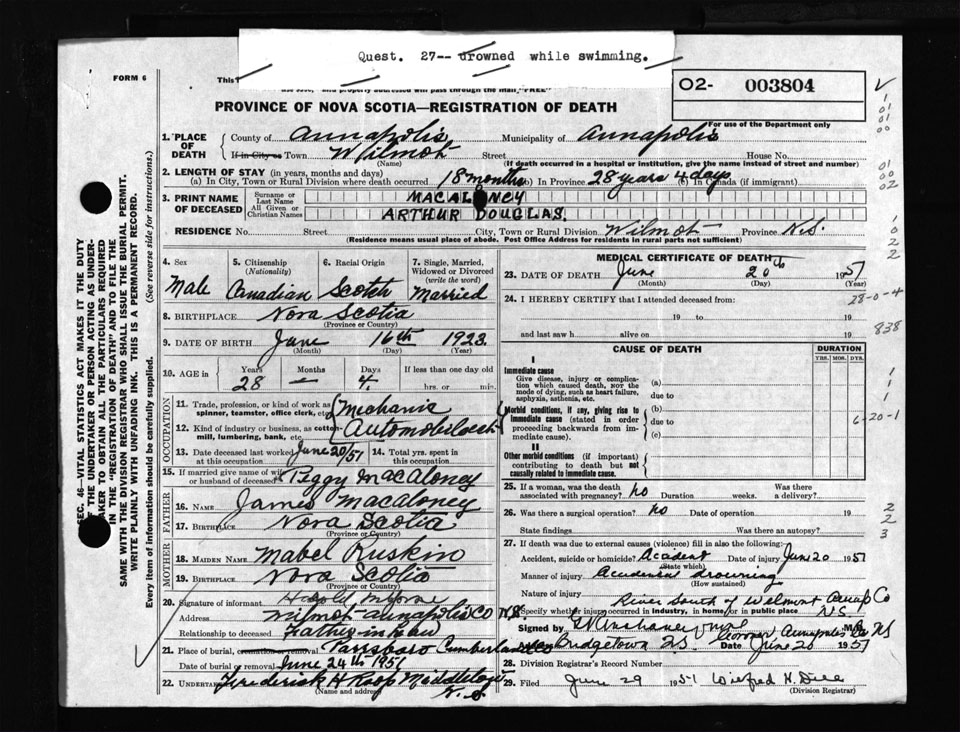 Quest. 27-- drowned while swimming.
FORM 6
This
O2- 003804
PROVINCE OF NOVA SCOTIA—REGISTRATION OF DEATH
For use of the Department only
1. PLACE OF DEATH County of Annapolis Municipality of Annapolis
If in City or Town Wilmot Street House No.
(Name) (If death occurred in a hospital or institution, give the name instead of street and number)
2. LENGTH OF STAY (in years, months and days)
(a) In City, Town or Rural Division where death occurred 18 months (b) In Province 28 years 4 days (c) In Canada (if immigrant)
3. PRINT NAME OF DECEASED
Surname or Last Name MACALONEY
All Given or Christian Names ARTHUR DOUGLAS.
RESIDENCE No. Street City, Town or Rural Division Wilmot Province N.S.
(Residence means usual place of abode. Post Office Address for residents in rural parts not sufficient)
4. Sex Male
5. Citizenship (Nationality) Canadian
6. Racial Origin Scotch
7. Single, Married, Widowed or Divorced (write the word) Married
8. BIRTHPLACE Nova Scotia
(Province or Country)
9. DATE OF BIRTH June 16th 1923
(Month) (Day) (Year)
10. AGE in Years 28 Months — Days 4 If less than one day old
hrs. or min.
OCCUPATION
11. Trade, profession, or kind of work as spinner, teamster, office clerk, etc. Mechanic
12. Kind of industry or business, as cotton mill, lumbering, bank, etc.
13. Date deceased last worked at this occupation June 20/51 14. Total yrs. spent in this occupation
15. If married give name of wife or husband of deceased Peggy MacAloney
FATHER
16. NAME James Macaloney
17. BIRTHPLACE Nova Scotia
MOTHER
18. MAIDEN NAME Mabel Ruskin
19. BIRTHPLACE Nova Scotia
(Province or Country)
20. Signature of informant
Address Wilmot Annapolis Co N.S.
Relationship to deceased Father in law
21. Place of burial, cremation or removal Parrsboro Cumberland Co
Date of burial or removal June 24th 1951
22. Undertaker Frederick H Roop Middleton N.S.
(Name and address)
MEDICAL CERTIFICATE OF DEATH
23. DATE OF DEATH June 20th 1951
(Month) (Day) (Year)
24. I HEREBY CERTIFY that I attended deceased from:
19 to 19
and last saw h alive on 19
CAUSE OF DEATH
DURATION
YRS. MOS. DYS.
I
Immediate cause
Give disease, injury or complication which caused death, NOT the mode of dying, such as heart failure, asphyxia, asthenia, etc. (a)
due to
Morbid conditions, if any, giving rise to immediate cause (stated in order proceeding backwards from immediate cause). (b)
due to
(c)
II
Other morbid conditions (if important) contributing to death but not causally related to immediate cause.
25. If a woman, was the death associated with pregnancy? no Duration weeks. Was there a delivery?
26. Was there a surgical operation? no Date of operation 19
State findings Was there an autopsy?
27. If death was due to external causes (violence) fill in also the following:
Accident, suicide or homicide? Accident Date of injury Jun 20 1951
(State which)
Manner of injury Accidental drowning
(How sustained)
Nature of injury
River South of Wilmont Annap Co
Specify whether injury occurred in industry, in home, or in public place NS
Signed by M.D.
Bridgetown N.S. Coroner Annapolis Co NS
Date June 20 1951
28. Division Registrar's Record Number
29. Filed June 29 1951
(Division Registrar)
SEC. 46—VITAL STATISTICS ACT MAKES IT THE DUTY OF THE UNDERTAKER OR PERSON ACTING AS UNDERTAKER TO OBTAIN ALL THE PARTICULARS REQUIRED IN THE "REGISTRATION OF DEATH" AND TO FILE THE SAME WITH THE DIVISION REGISTRAR WHO SHALL ISSUE THE BURIAL PERMIT.
WRITE PLAINLY WITH UNFADING INK. THIS IS A PERMANENT RECORD.
Every item of information should be carefully supplied. (See reverse side for instructions.)
28-0-4
838
6-20-1